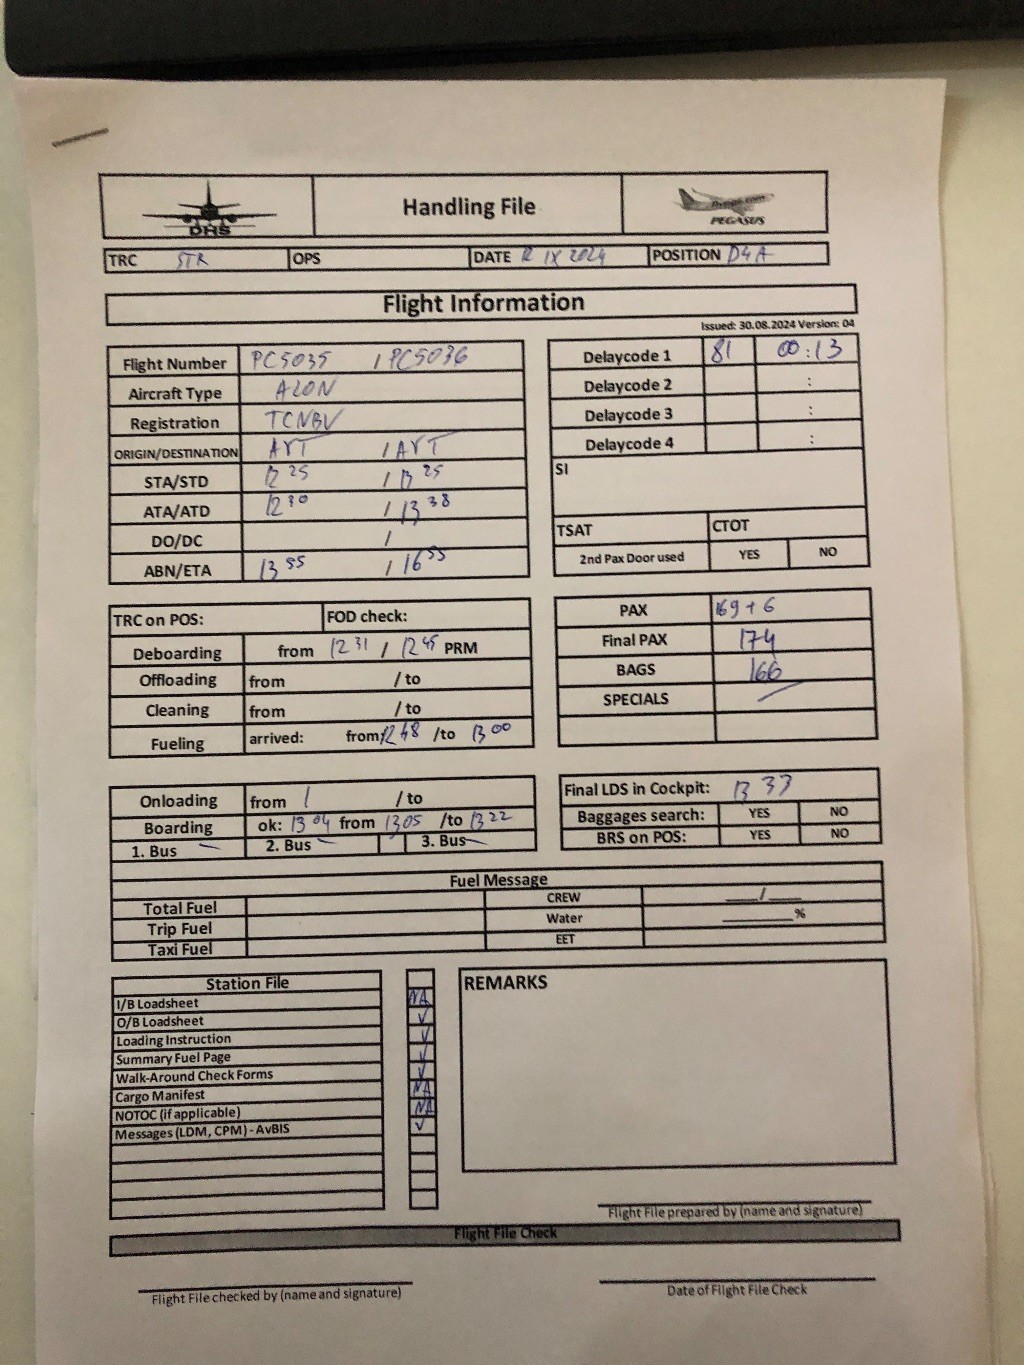 DHS
Handling File
flypgs.com
PEGASUS
TRC STR OPS DATE 12 IX 2024 POSITION D4A
Flight Information
Issued: 30.08.2024 Version: 04
Flight Number PC5035 / PC5036
Aircraft Type A20N
Registration TCNBV
ORIGIN/DESTINATION AYT / AYT
STA/STD 12 25 / 13 25
ATA/ATD 12 30 / 13 38
DO/DC /
ABN/ETA 13 55 / 16 55
Delaycode 1 81 00:13
Delaycode 2 :
Delaycode 3 :
Delaycode 4 :
SI
TSAT CTOT
2nd Pax Door used YES NO
TRC on POS: FOD check:
Deboarding from 12 31 / 12 45 PRM
Offloading from / to
Cleaning from / to
Fueling arrived: from 12 48 /to 13 00
PAX 169+6
Final PAX 174
BAGS 166
SPECIALS
Onloading from / / to
Boarding ok: 13 04 from 13 05 /to 13 22
1. Bus 2. Bus 3. Bus
Final LDS in Cockpit: 13 33
Baggages search: YES NO
BRS on POS: YES NO
Fuel Message
Total Fuel CREW ___/___
Trip Fuel Water ______%
Taxi Fuel EET
Station File
I/B Loadsheet NA
O/B Loadsheet ✓
Loading Instruction ✓
Summary Fuel Page ✓
Walk-Around Check Forms ✓
Cargo Manifest NA
NOTOC (if applicable) NA
Messages (LDM, CPM) - AvBIS ✓
REMARKS
Flight File prepared by (name and signature)
Flight File Check
Flight File checked by (name and signature)
Date of Flight File Check